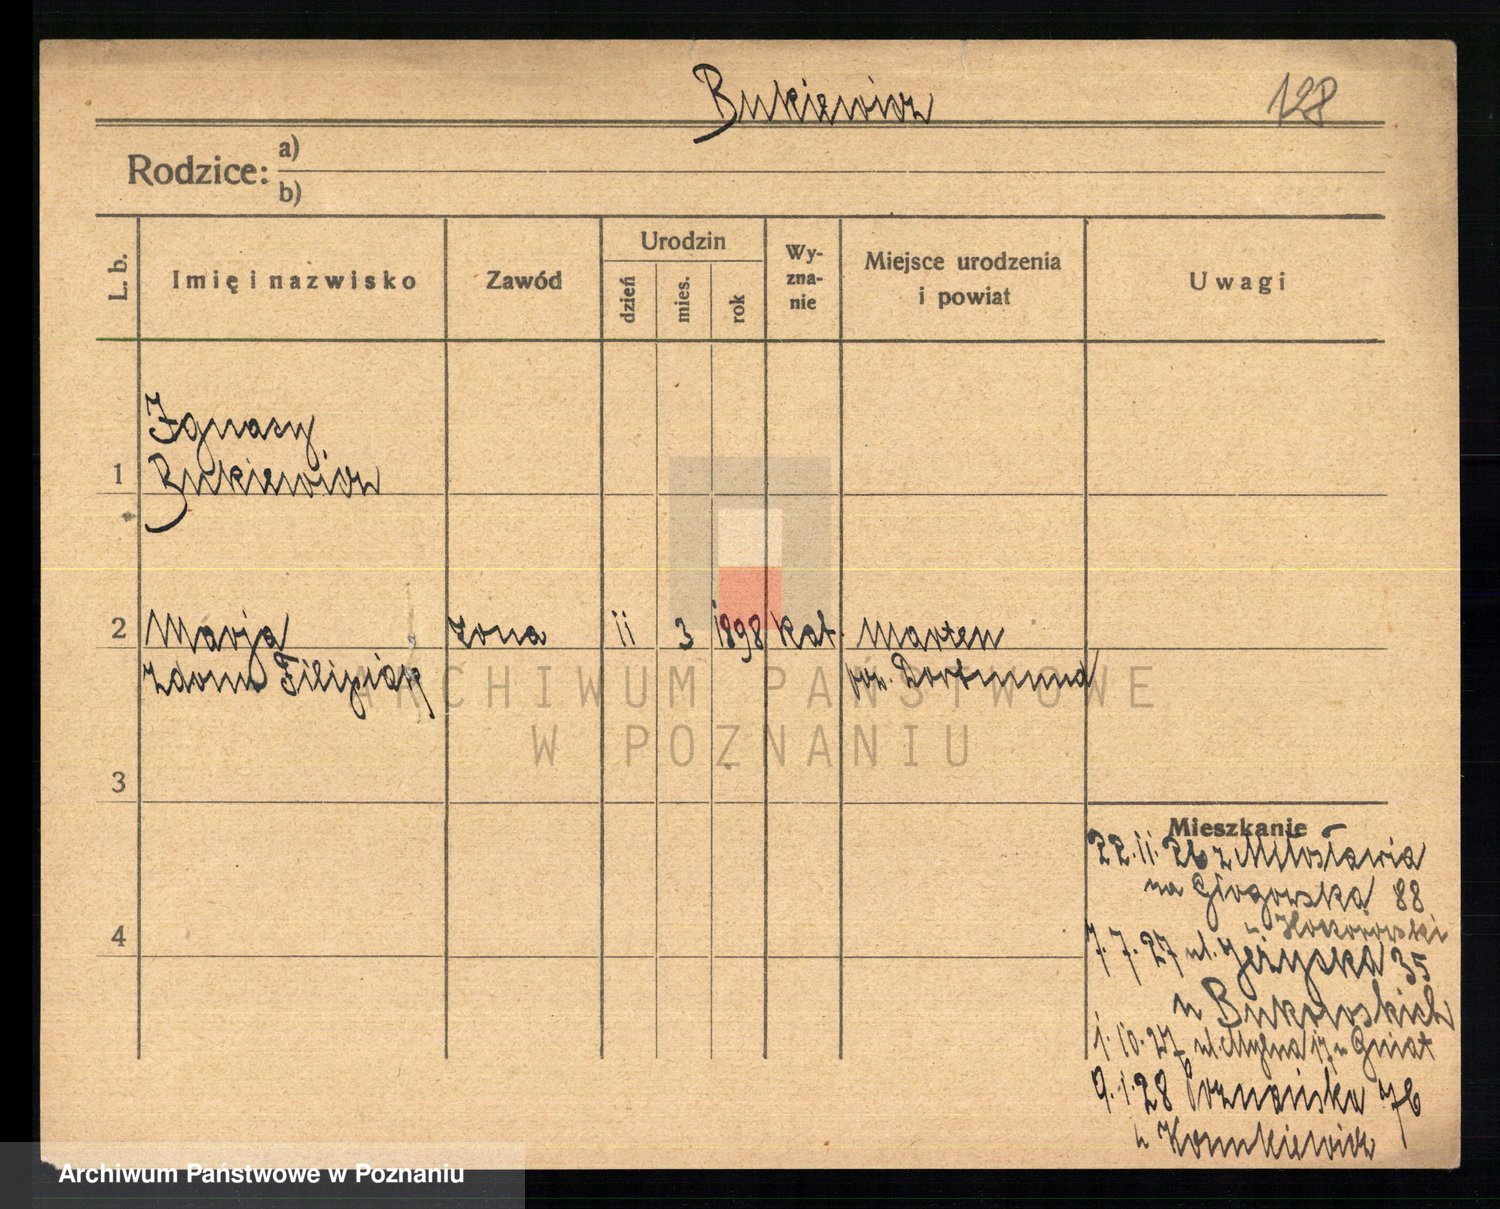 Bukiewicz 128
Rodzice: a)
b)
L. b. Imię i nazwisko Zawód Urodzin dzień mies. rok Wy-zna-nie Miejsce urodzenia i powiat Uwagi
Ignacy
1 Bukiewicz
2 Marja żona 11 3 1898 kat. Marten
zdom. Filipiak pow. Dortmund
ARCHIWUM PAŃSTWOWE
W POZNANIU
3
Mieszkanie
22.11.26 z Miłosławia
na Głogowską 88
4
u Kokorowski
1.7.27 ul. Jeżycka 35
u Bukowskich
1.10.27 ul. Młyna 17 u Gniat
9.1.28 Poznańska 76
u Komkiewicz
Archiwum Państwowe w Poznaniu